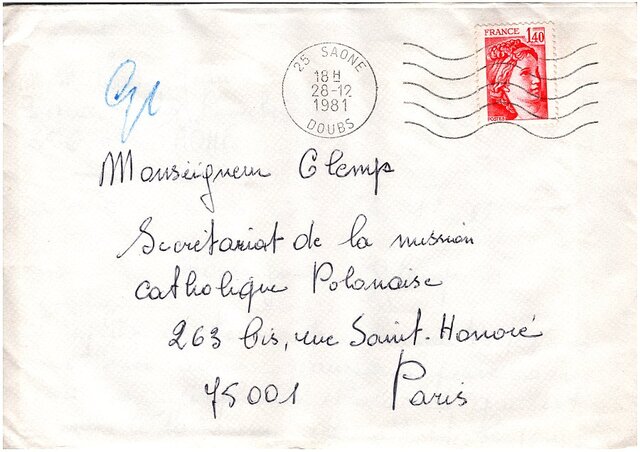 FRANCE
1,40
25 SAONE
18H
28-12
1981
DOUBS
Monseigneur Glemp
Secrétariat de la mission
catholique Polonaise
263 bis, rue Saint-Honoré
75001 Paris